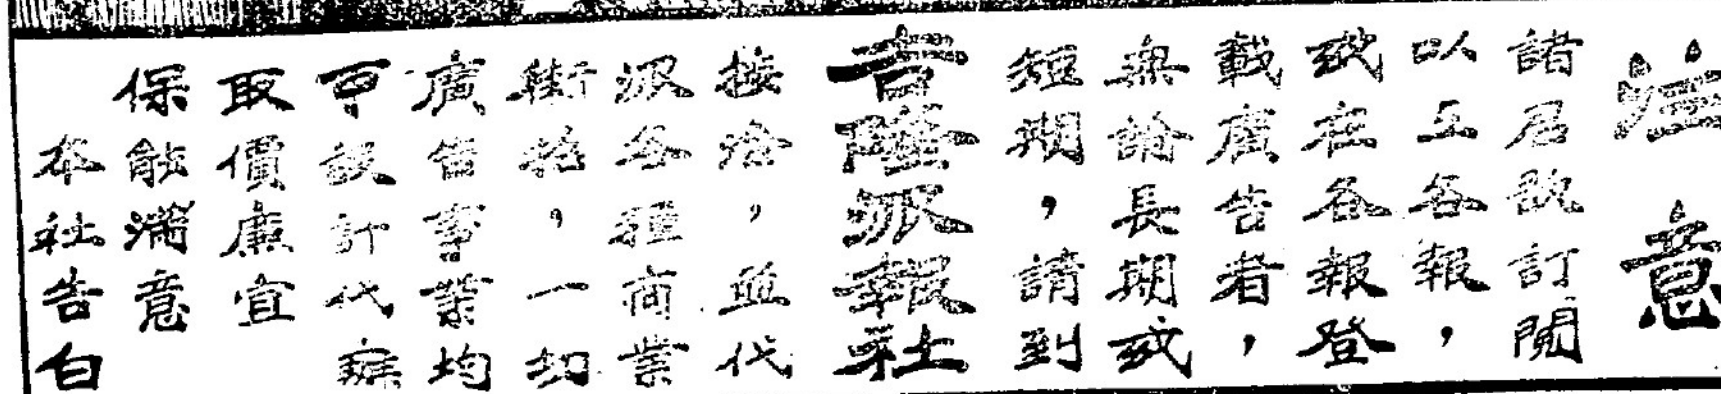 注意
諸君欲訂閱
以上各報，
或在各報登
載廣告者，
無論長期或
短期，請到
吉隆派報社
接洽，並代
派各種商業
街招，一切
廣告事業均
可設計代辦
取價廉宜
保能滿意
本社告白